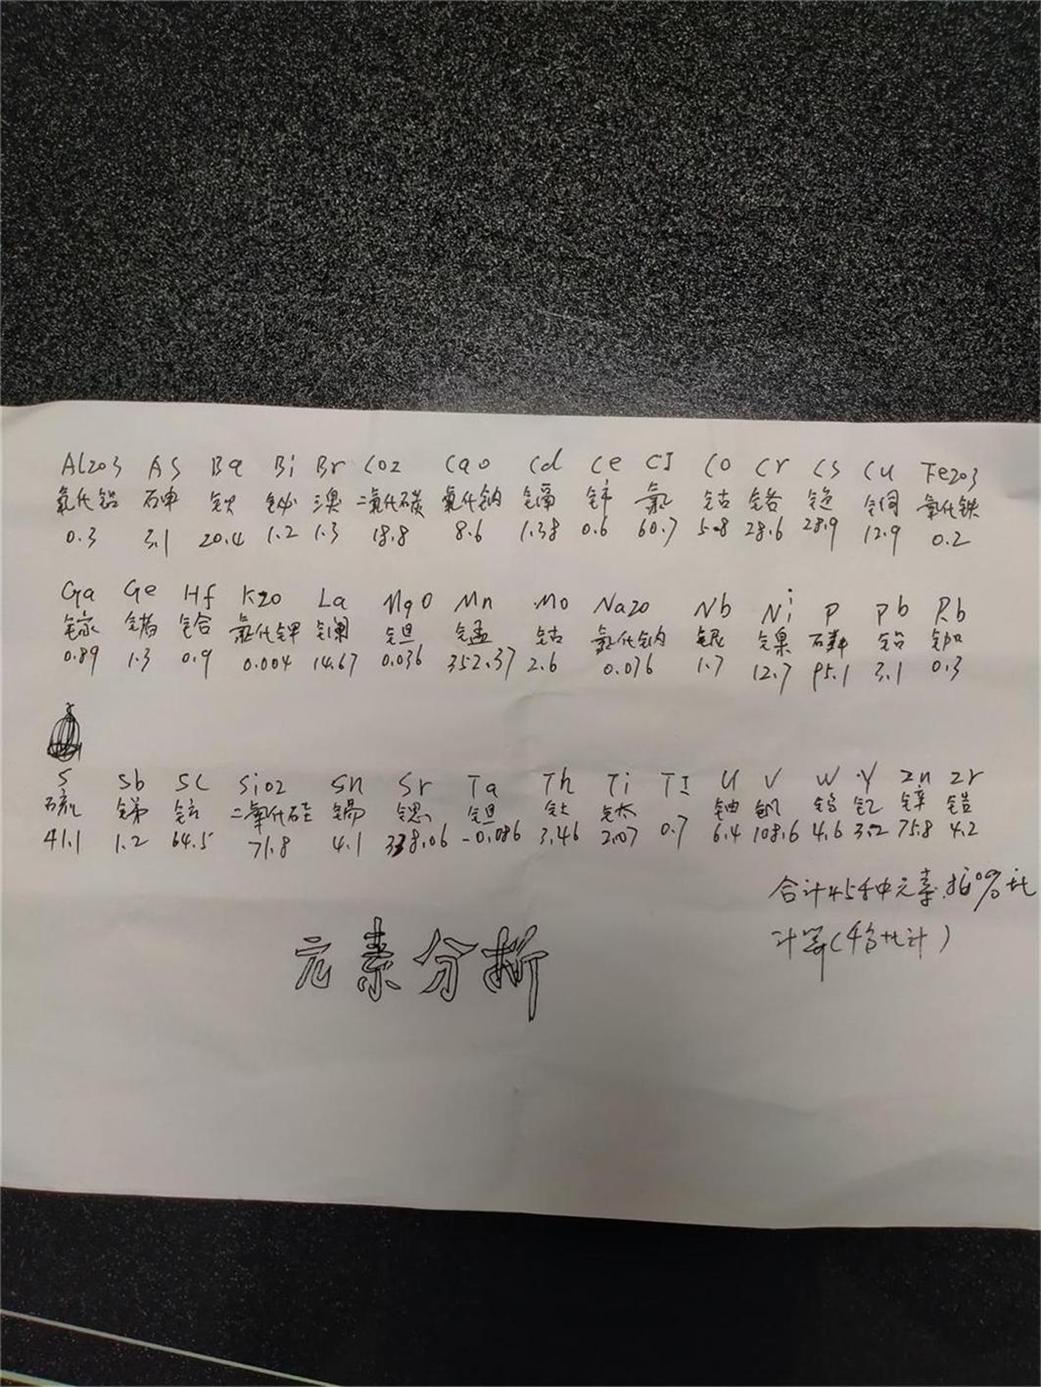 Al2O3 AS Ba Bi Br CO2 CaO Cd Ce CI CO Cr CS Cu Fe2O3
氧化铝 石申 钡 铋 溴 二氧化碳 氧化钠 镉 铈 氯 钴 铬 铯 铜 氧化铁
0.3 3.1 20.4 1.2 1.3 18.8 8.6 1.38 0.6 60.7 5.8 28.6 28.9 12.9 0.2
Ga Ge Hf K2O La MgO Mn Mo Na2O Nb Ni P Pb Rb
镓 锗 铪 氧化钾 镧 钽 锰 钴 氧化钠 铌 镍 磷 铅 铷
0.89 1.3 0.9 0.004 14.67 0.036 352.37 2.6 0.076 1.7 12.7 95.1 3.1 0.3
S Sb SC SiO2 Sn Sr Ta Th Ti TI U V W Y Zn Zr
硫 锑 钪 二氧化硅 锡 锶 钽 钍 钛 铀 钒 钨 钇 锌 锆
41.1 1.2 64.5 71.8 4.1 338.06 -0.086 3.46 2.07 0.7 6.4 108.6 4.6 3.2 75.8 4.2
合计45种元素
计算
元素分析